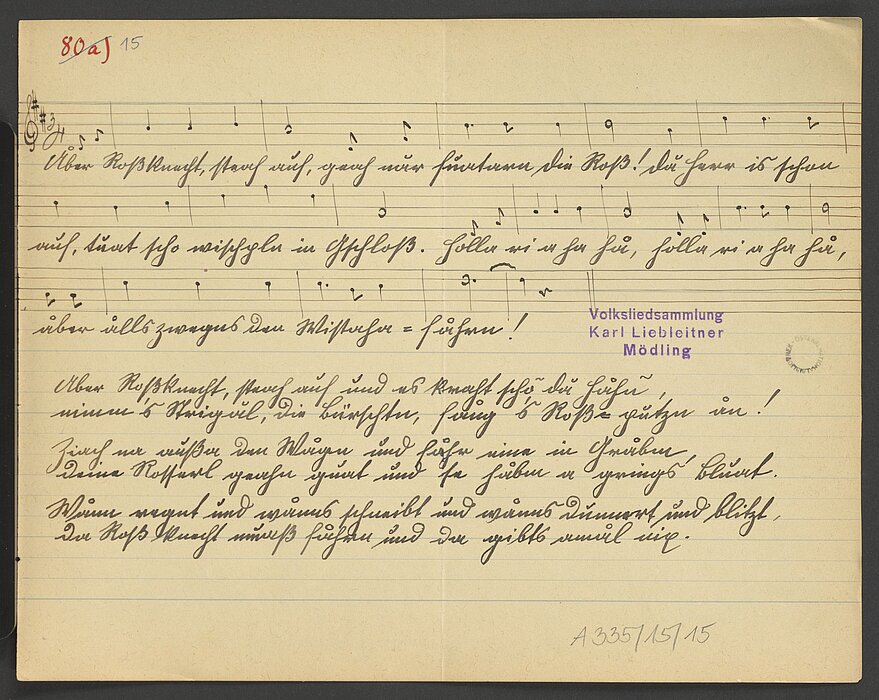 80a) 15
3/4
Åber Roßknecht, steah auf, geah når fuatarn die Roß! då Herr is schon
auf, tuat scho wischpln in Gschloß. Hollari a ha hå, hollari a ha hå,
åber ålls zwegns den Wistaha = fåhrn!
Volksliedsammlung
Karl Liebleitner
Mödling
Åber Roßknecht, steah auf und es kraht scho då Håhn,
nimm 's Strigål, die Bürschtn, fång 's Roß=putzn ån!
Ziach na außa den Wågn und fåhr eine in Gråbm,
deine Rosserl geahn guat und se håbm a grings Bluat.
Wånn regnt und wånns schneibt und wånns dunnert und blitzt,
da Roß knecht muaß fåhrn und da gibts amål nix.
A 335/15/15